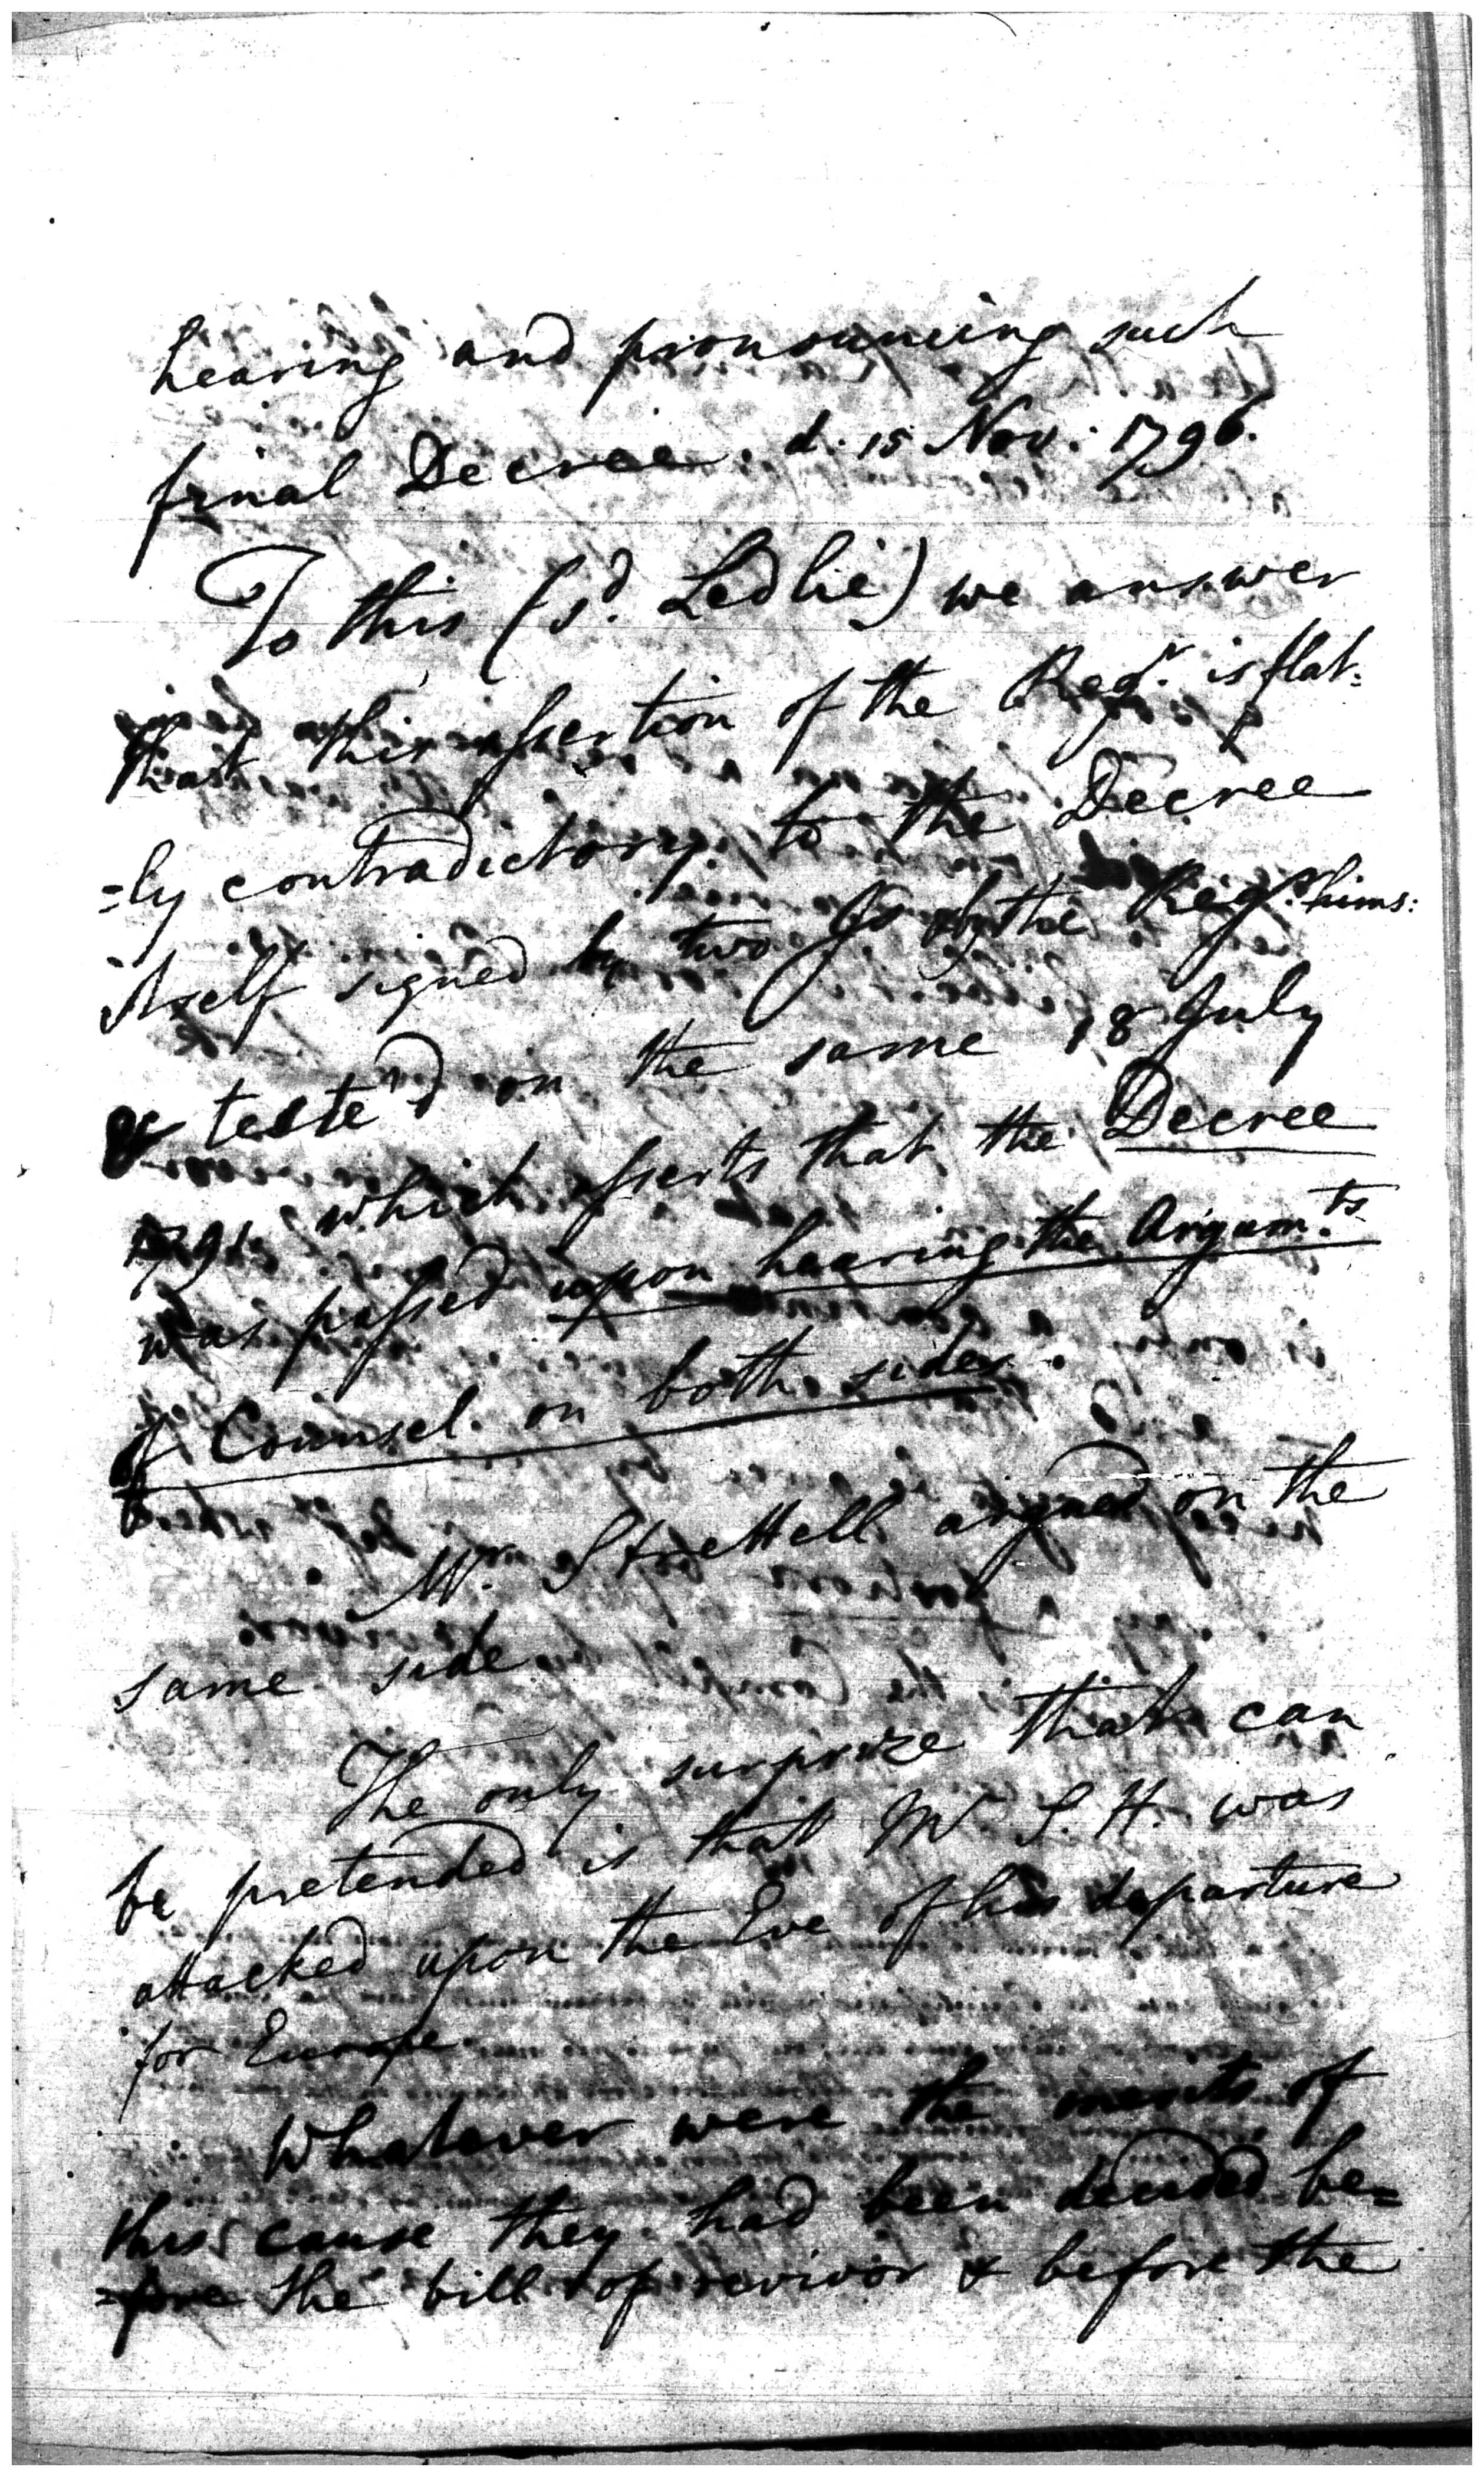 hearing and pronouncing such
final Decree. d. 15 Nov: 1796.
To this (sd. Ledlie) we answer
that this assertion of the Regr. is flat=
=ly contradictory to the Decree
itself signed by two Js & by the Regr. hims:
& teste'd on the same 18 July
1791. which asserts that the Decree
was passed upon hearing the Argum.ts
of Counsel on both sides.
Mr. Strettell argued on the
same side.
The only surprize that can
be pretended is that Mr S. H. was
attacked upon the Eve of his departure
for Europe
Whatever were the merits of
this cause they had been decided be=
=fore the bill of revivor & before the